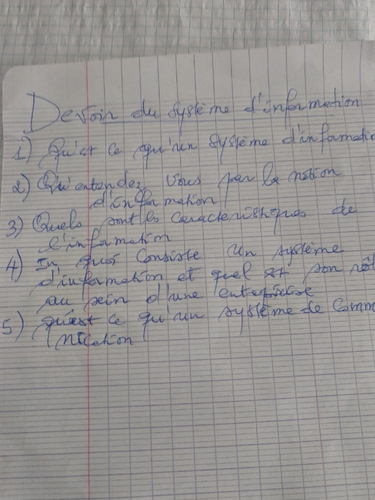 Devoir du système d'information
1) Qu'est ce qu'un système d'informatio
2) Qu'entendez vous par la notion
d'information
3) Quels sont les caractéristiques de
l'information
4) In quoi consiste un système
d'information et quel est son rôl
au sein d'une entreprise
5) qu'est ce qu'un système de comm
nication